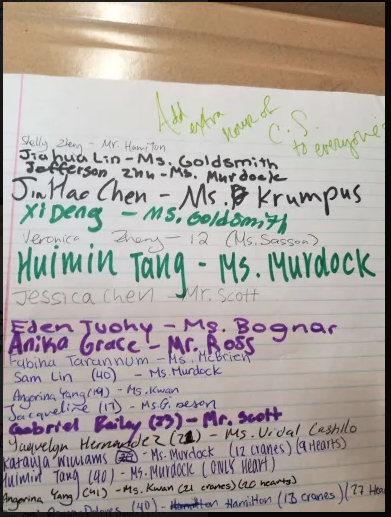 Add
extra
hour of
C.S.
to everyone's
Shelly Zheng - Mr. Hamilton
Jiahua Lin - Ms. Goldsmith
Jefferson Zhu - Ms. Murdock
Jin Hao Chen - Ms. Krumpus
Xi Deng - Ms. Goldsmith
Veronica Zhang - 12 (Ms. Sasson)
Huimin Tang - Ms. Murdock
Jessica Chen - Mr. Scott
Eden Tuohy - Ms. Bognar
Anika Grace - Mr. Ross
Fabiha Tarannum - Ms. McBrien
Sam Lin (40) - Ms. Murdock
Angerina Yang (19) - Ms. Kwan
Jacqueline (17) - Ms. Gibeson
Gabriel Bailey (33) - Mr. Scott
Jaquelyn Hernandez (21) - Ms. Vidal Castillo
Williams - Ms. Murdock (12 cranes) (9 Hearts)
Huimin Tang (90) - Ms. Murdock (ONLY Heart)
Angerina Yang (41) - Ms. Kwan (21 cranes) (20 hearts)
(40) - Hamilton (13 cranes) (27 Hear